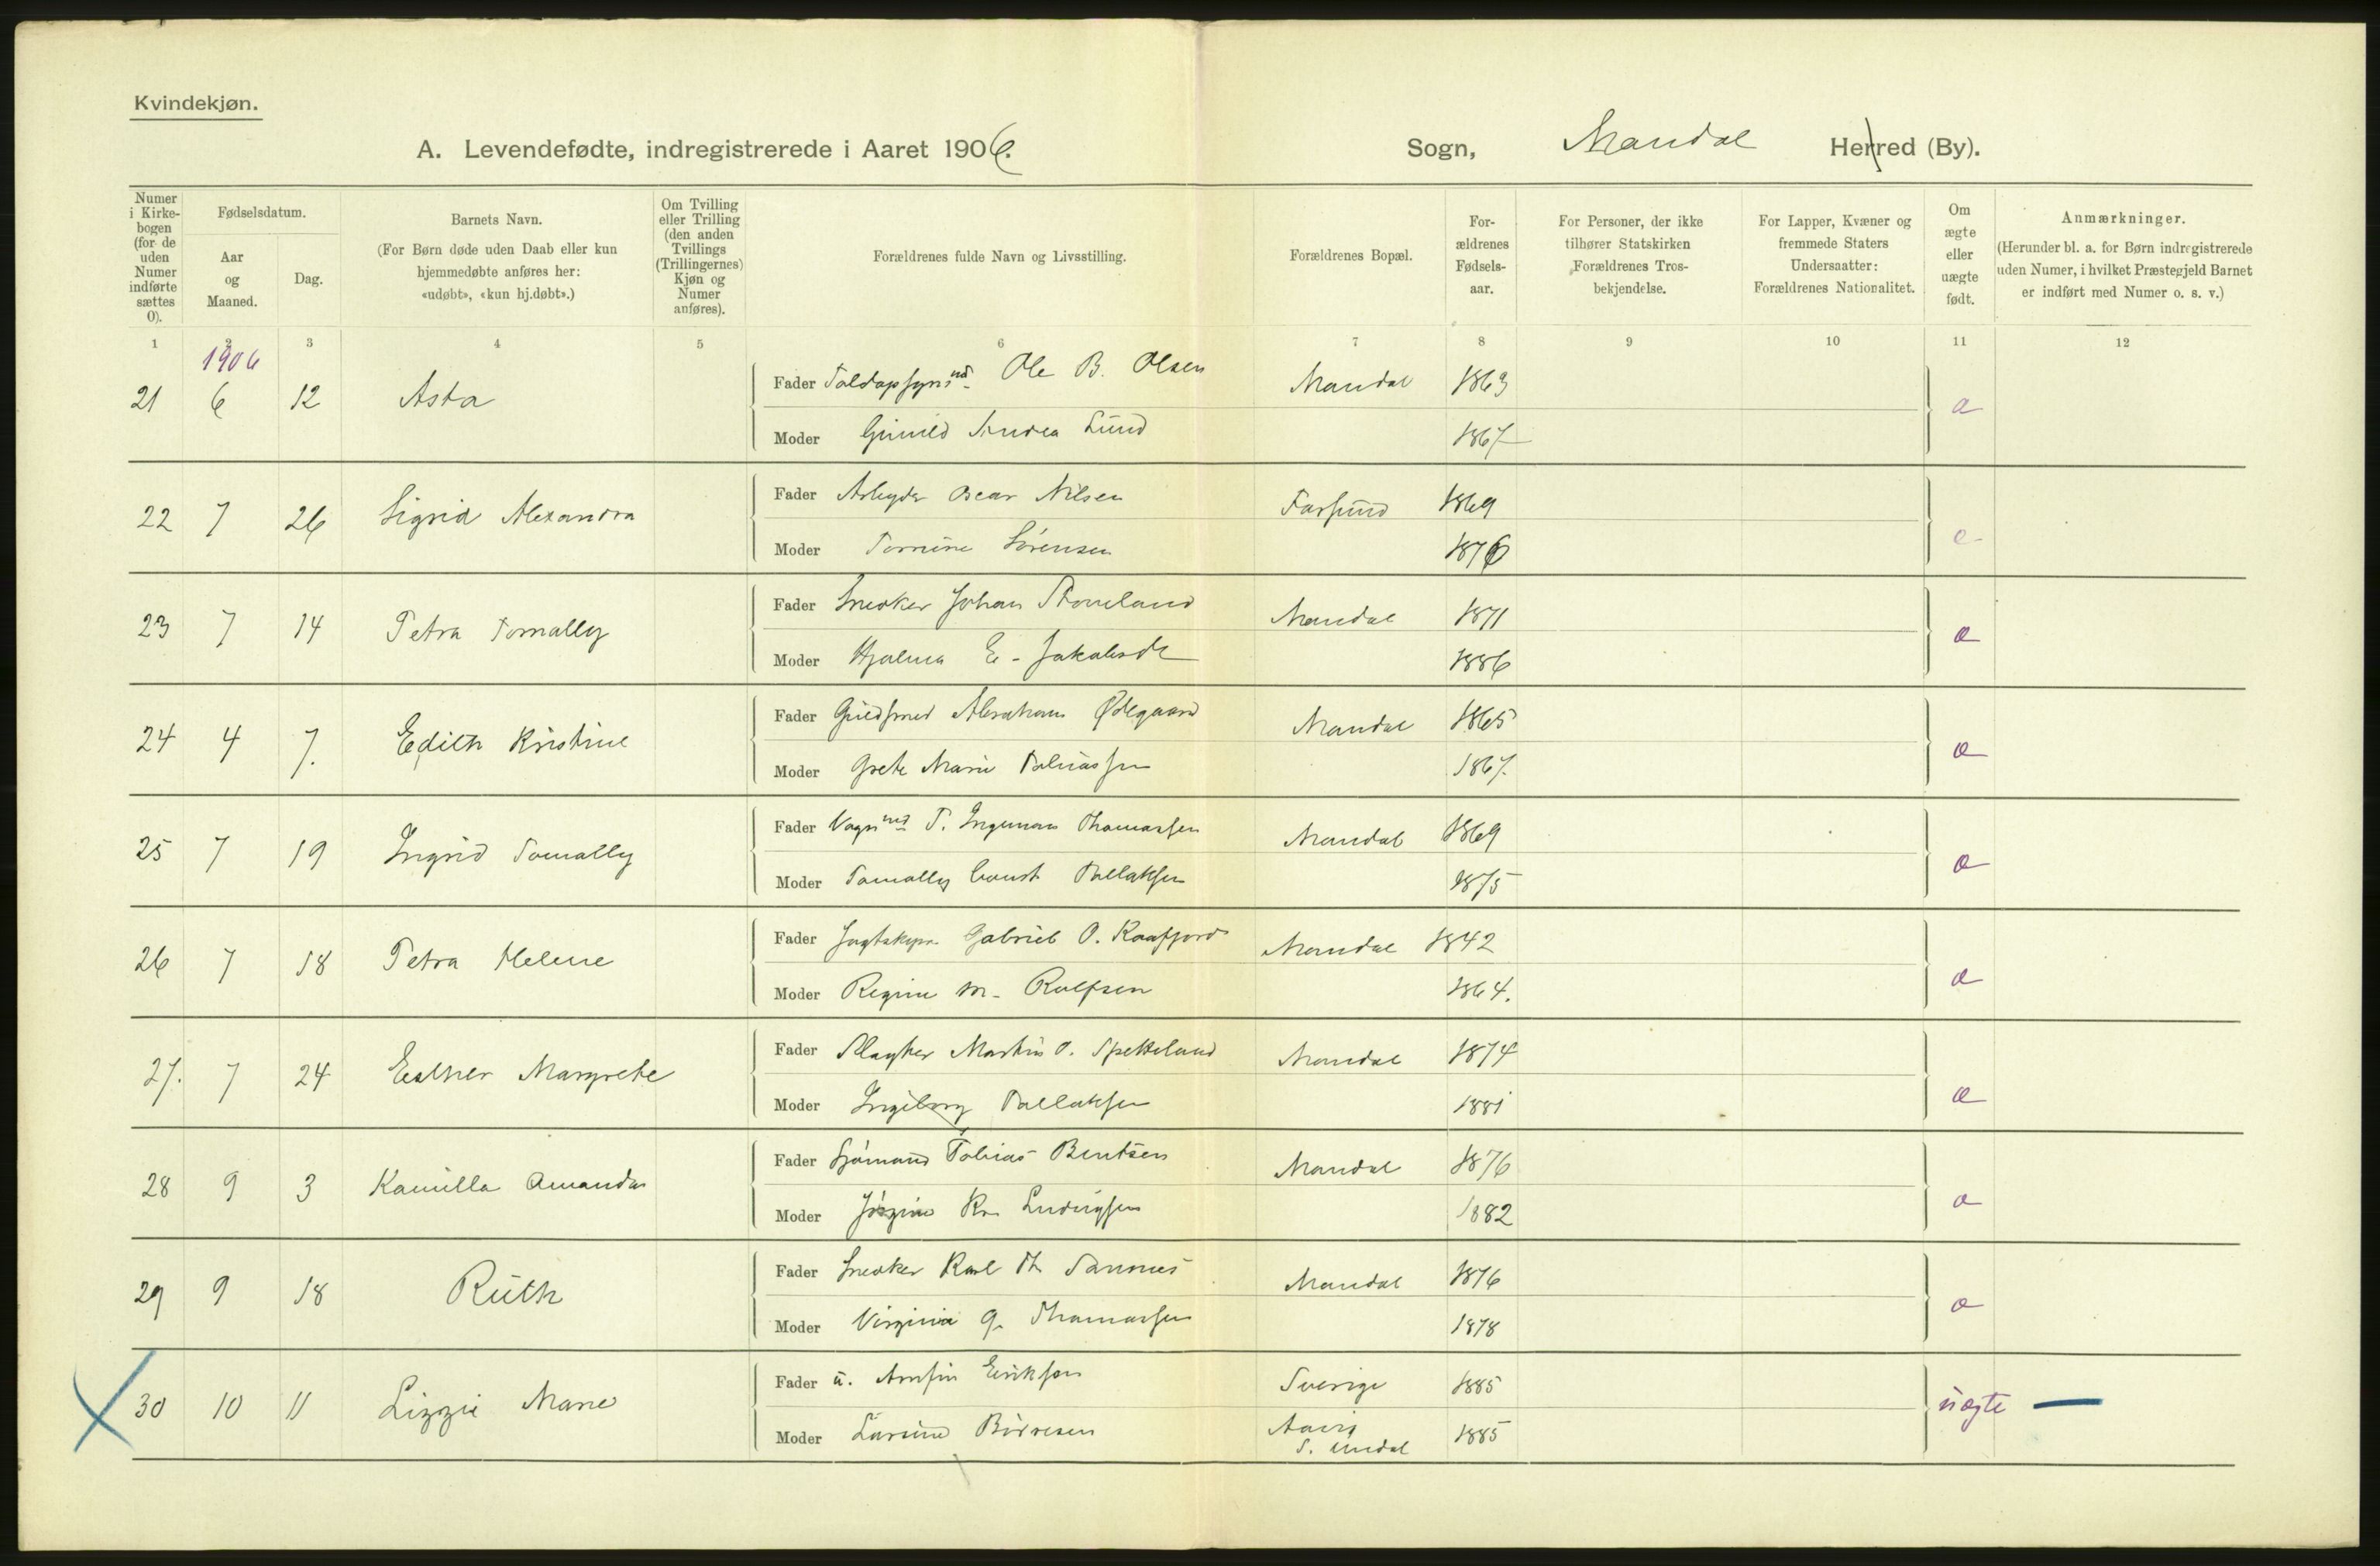 Kvindekjøn.
A. Levendefødte, indregistrerede i Aaret 1906.
Sogn, Mandal Herred (By).
Numer i Kirkebogen (for de uden Numer indførte sættes 0).
Fødselsdatum.
Aar og Maaned.
Dag.
Barnets Navn.
(For Børn døde uden Daab eller kun hjemmedøbte anføres her: «udøbt», «kun hj.døbt».)
Om Tvilling eller Trilling (den anden Tvillings (Trillingernes) Kjøn og Numer anføres).
Forældrenes fulde Navn og Livsstilling.
Forældrenes Bopæl.
Forældrenes Fødselsaar.
For Personer, der ikke tilhører Statskirken Forældrenes Trosbekjendelse.
For Lapper, Kvæner og fremmede Staters Undersaatter: Forældrenes Nationalitet.
Om ægte eller uægte født.
Anmærkninger.
(Herunder bl. a. for Børn indregistrerede uden Numer, i hvilket Præstegjeld Barnet er indført med Numer o. s. v.)
1 2 3 4 5 6 7 8 9 10 11 12
1906
21 6 12 Asta Fader Toldopsynsmd Ole B. Olsen Mandal 1863
Moder Gunild Lund 1867
22 7 26 Sigrid Alexandra Fader Arbeyder Oscar Nilsen Farsund 1869
Moder Tomine Sørensen 1876
23 7 14 Petra Tomally Fader Snedker Johan Stoveland Mandal 1871
Moder Hjalma E. Jakobsdt 1886
24 4 7. Edith Kristine Fader Guldsmed Abraham Ødegaard Mandal 1865
Moder Grete Marie Tobiassen 1867.
25 7 19 Ingrid Tomally Fader Vognmd T. Ingeman Thomassen Mandal 1869
Moder Tomally Const Tallaksen 1875
26 7 18 Petra Helene Fader Jagtskipr. Gabriel O. Kaafjord Mandal 1842
Moder Regine M. Rolfsen 1864.
27. 7 24 Esther Margrete Fader Slagter Martin O. Spetteland Mandal 1874
Moder Ingeborg Tallaksen 1881
28 9 3 Kamilla Amanda Fader Sjömand Tobias Bentsen Mandal 1876
Moder Jörgine Kr. Ludvigsen 1882
29 9 18 Ruth Fader Snedker Karl Th Sannes Mandal 1876
Moder Virginia G. Thomassen 1878
30 10 11 Lizzie Marie Fader u. Arnfin Eriksson Sverige 1885
Moder Lursine Børresen S. Undal 1885
uægte —